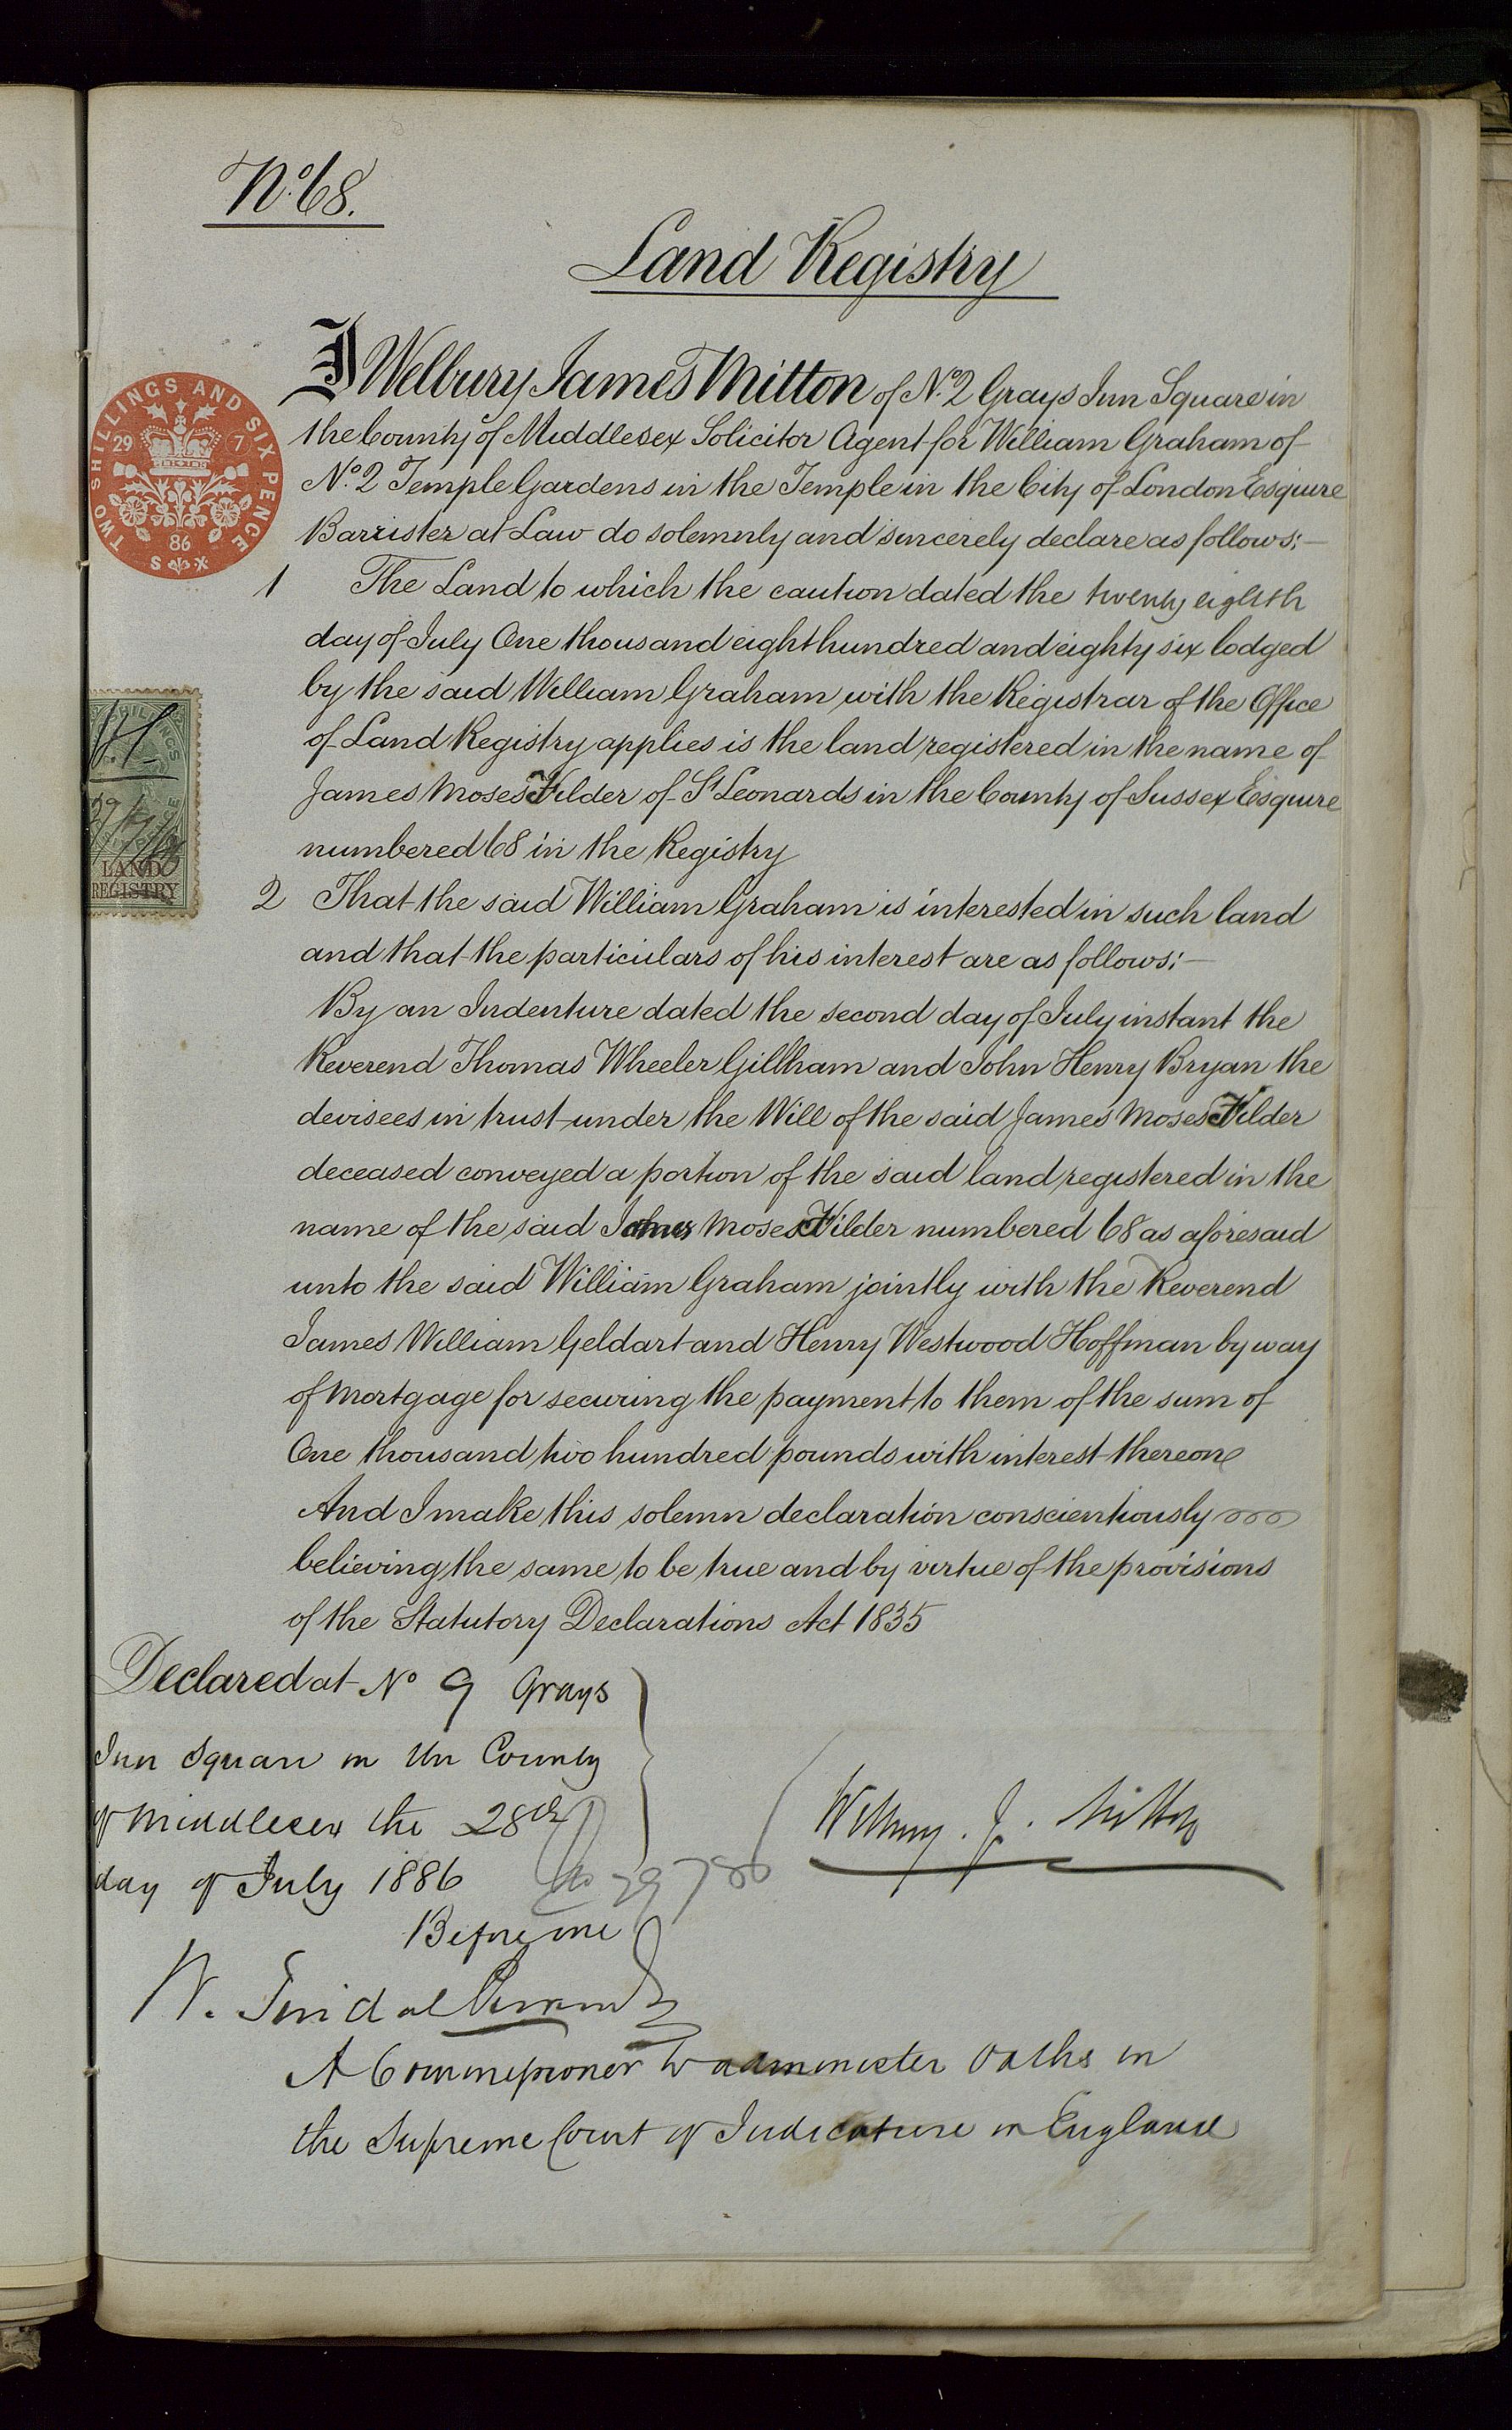 No. 68.
Land Registry
I Welbury James Mitton of No. 2 Grays Inn Square in
the County of Middlesex Solicitor Agent for William Graham of
No. 2 Temple Gardens in the Temple in the City of London Esquire
Barrister at Law do solemnly and sincerely declare as follows:—
TWO SHILLINGS AND SIX PENCE
29 7
86
S
1 The Land to which the caution dated the twenty eighth
day of July One thousand eight hundred and eighty six lodged
by the said William Graham with the Registrar of the Office
of Land Registry applies is the land registered in the name of
James Moses Filder of St Leonards in the County of Sussex Esquire
numbered 68 in the Registry
LAND
REGISTRY
2 That the said William Graham is interested in such land
and that the particulars of his interest are as follows:—
By an Indenture dated the second day of July instant the
Reverend Thomas Wheeler Gillham and John Henry Bryan the
devisees in trust under the Will of the said James Moses Filder
deceased conveyed a portion of the said land registered in the
name of the said James Moses Filder numbered 68 as aforesaid
unto the said William Graham jointly with the Reverend
James William Geldart and Henry Westwood Hoffman by way
of Mortgage for securing the payment to them of the sum of
One thousand two hundred pounds with interest thereon
And I make this solemn declaration conscientiously
believing the same to be true and by virtue of the provisions
of the Statutory Declarations Act 1835
Declared at No 9 Grays
Inn Square in the County
of Middlesex the 28th
day of July 1886
Before me
Welbury. J. Mitton
W. Tindal
A Commissioner to administer Oaths in
the Supreme Court of Judicature in England